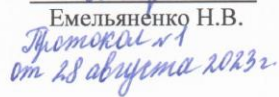 Емельяненко Н.В.
Протокол №1
от 28 августа 2023г.